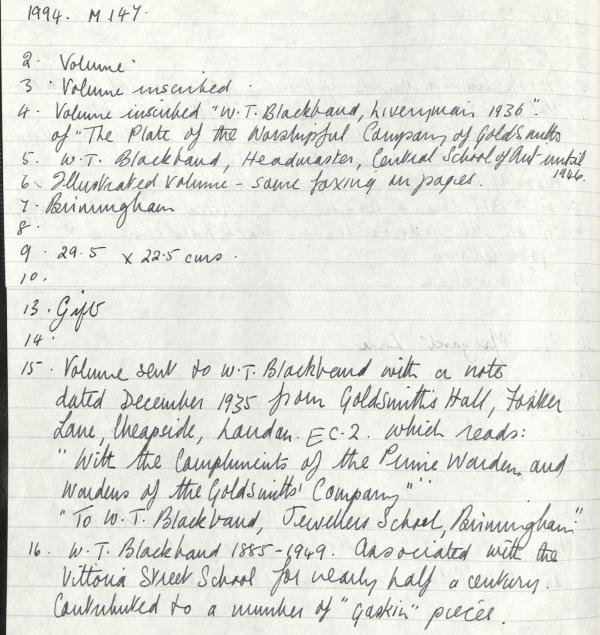 1994. M 147.
2. Volume.
3. Volume inscribed.
4. Volume inscribed "W.T. Blackband, Liveryman 1936".
of "The Plate of the Worshipful Company of Goldsmiths
5. W.T. Blackband, Headmaster, Central School of Art until
1946.
6. Illustrated volume - some foxing on pages.
7. Birmingham
8.
9. 29.5 x 22.5 cms.
10.
13. Gift
14.
15. Volume sent to W.T. Blackband with a note
dated December 1935 from Goldsmiths Hall, Foster
Lane, Cheapside, London. EC.2. which reads:
"With the Compliments of the Prime Warden and
Wardens of the Goldsmiths' Company"
"To W.T. Blackband, Jewellers School, Birmingham"
16. W.T. Blackband 1885-1949. Associated with the
Vittoria Street School for nearly half a century.
Contributed to a number of "Gaskin" pieces.